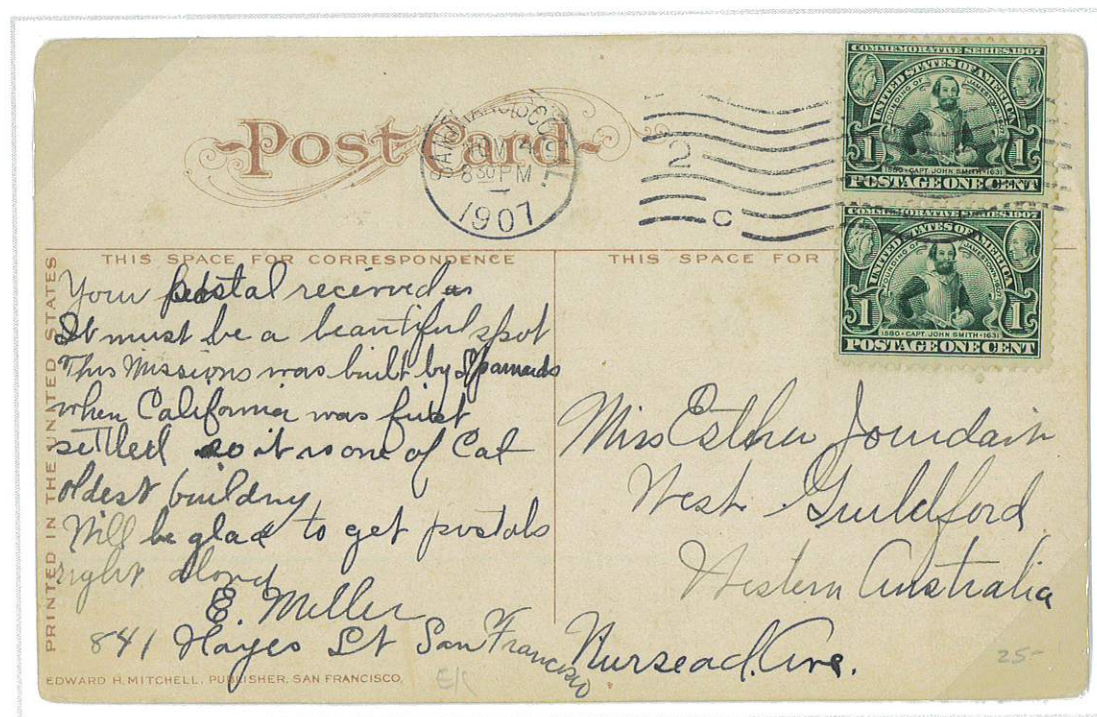 Post Card
SAN FRANCISCO
NOV 4
8 30 PM
1907
2
C
COMMEMORATIVE SERIES 1907
UNITED STATES OF AMERICA
FOUNDING OF JAMESTOWN
1 1
1580 · CAPT. JOHN SMITH · 1631
POSTAGE ONE CENT
COMMEMORATIVE SERIES 1907
UNITED STATES OF AMERICA
FOUNDING OF JAMESTOWN
1 1
1580 · CAPT. JOHN SMITH · 1631
POSTAGE ONE CENT
THIS SPACE FOR CORRESPONDENCE
THIS SPACE FOR
PRINTED IN THE UNITED STATES
Your postal received
It must be a beautiful spot
This Missions was built by Spaniards
when California was first
settled so it is one of Cal
oldest building
Will be glad to get postals
right along
E. Miller
841 Hayes St San Francisco
Miss Esther Jourdain
West Guildford
Western Australia
Ave.
EDWARD H. MITCHELL, PUBLISHER, SAN FRANCISCO.
25-